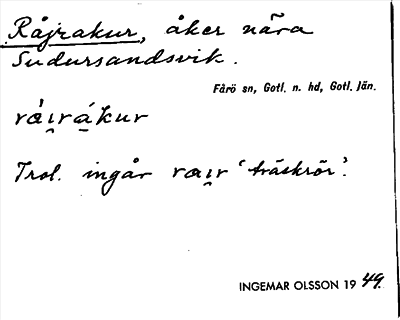 Råjrakur, åker nära
Sudursandsvik.
Fårö sn, Gotl. n. hd, Gotl. län.
rȧi̯rákur
Trol. ingår rai̯r 'träskrör'.
INGEMAR OLSSON 1949.